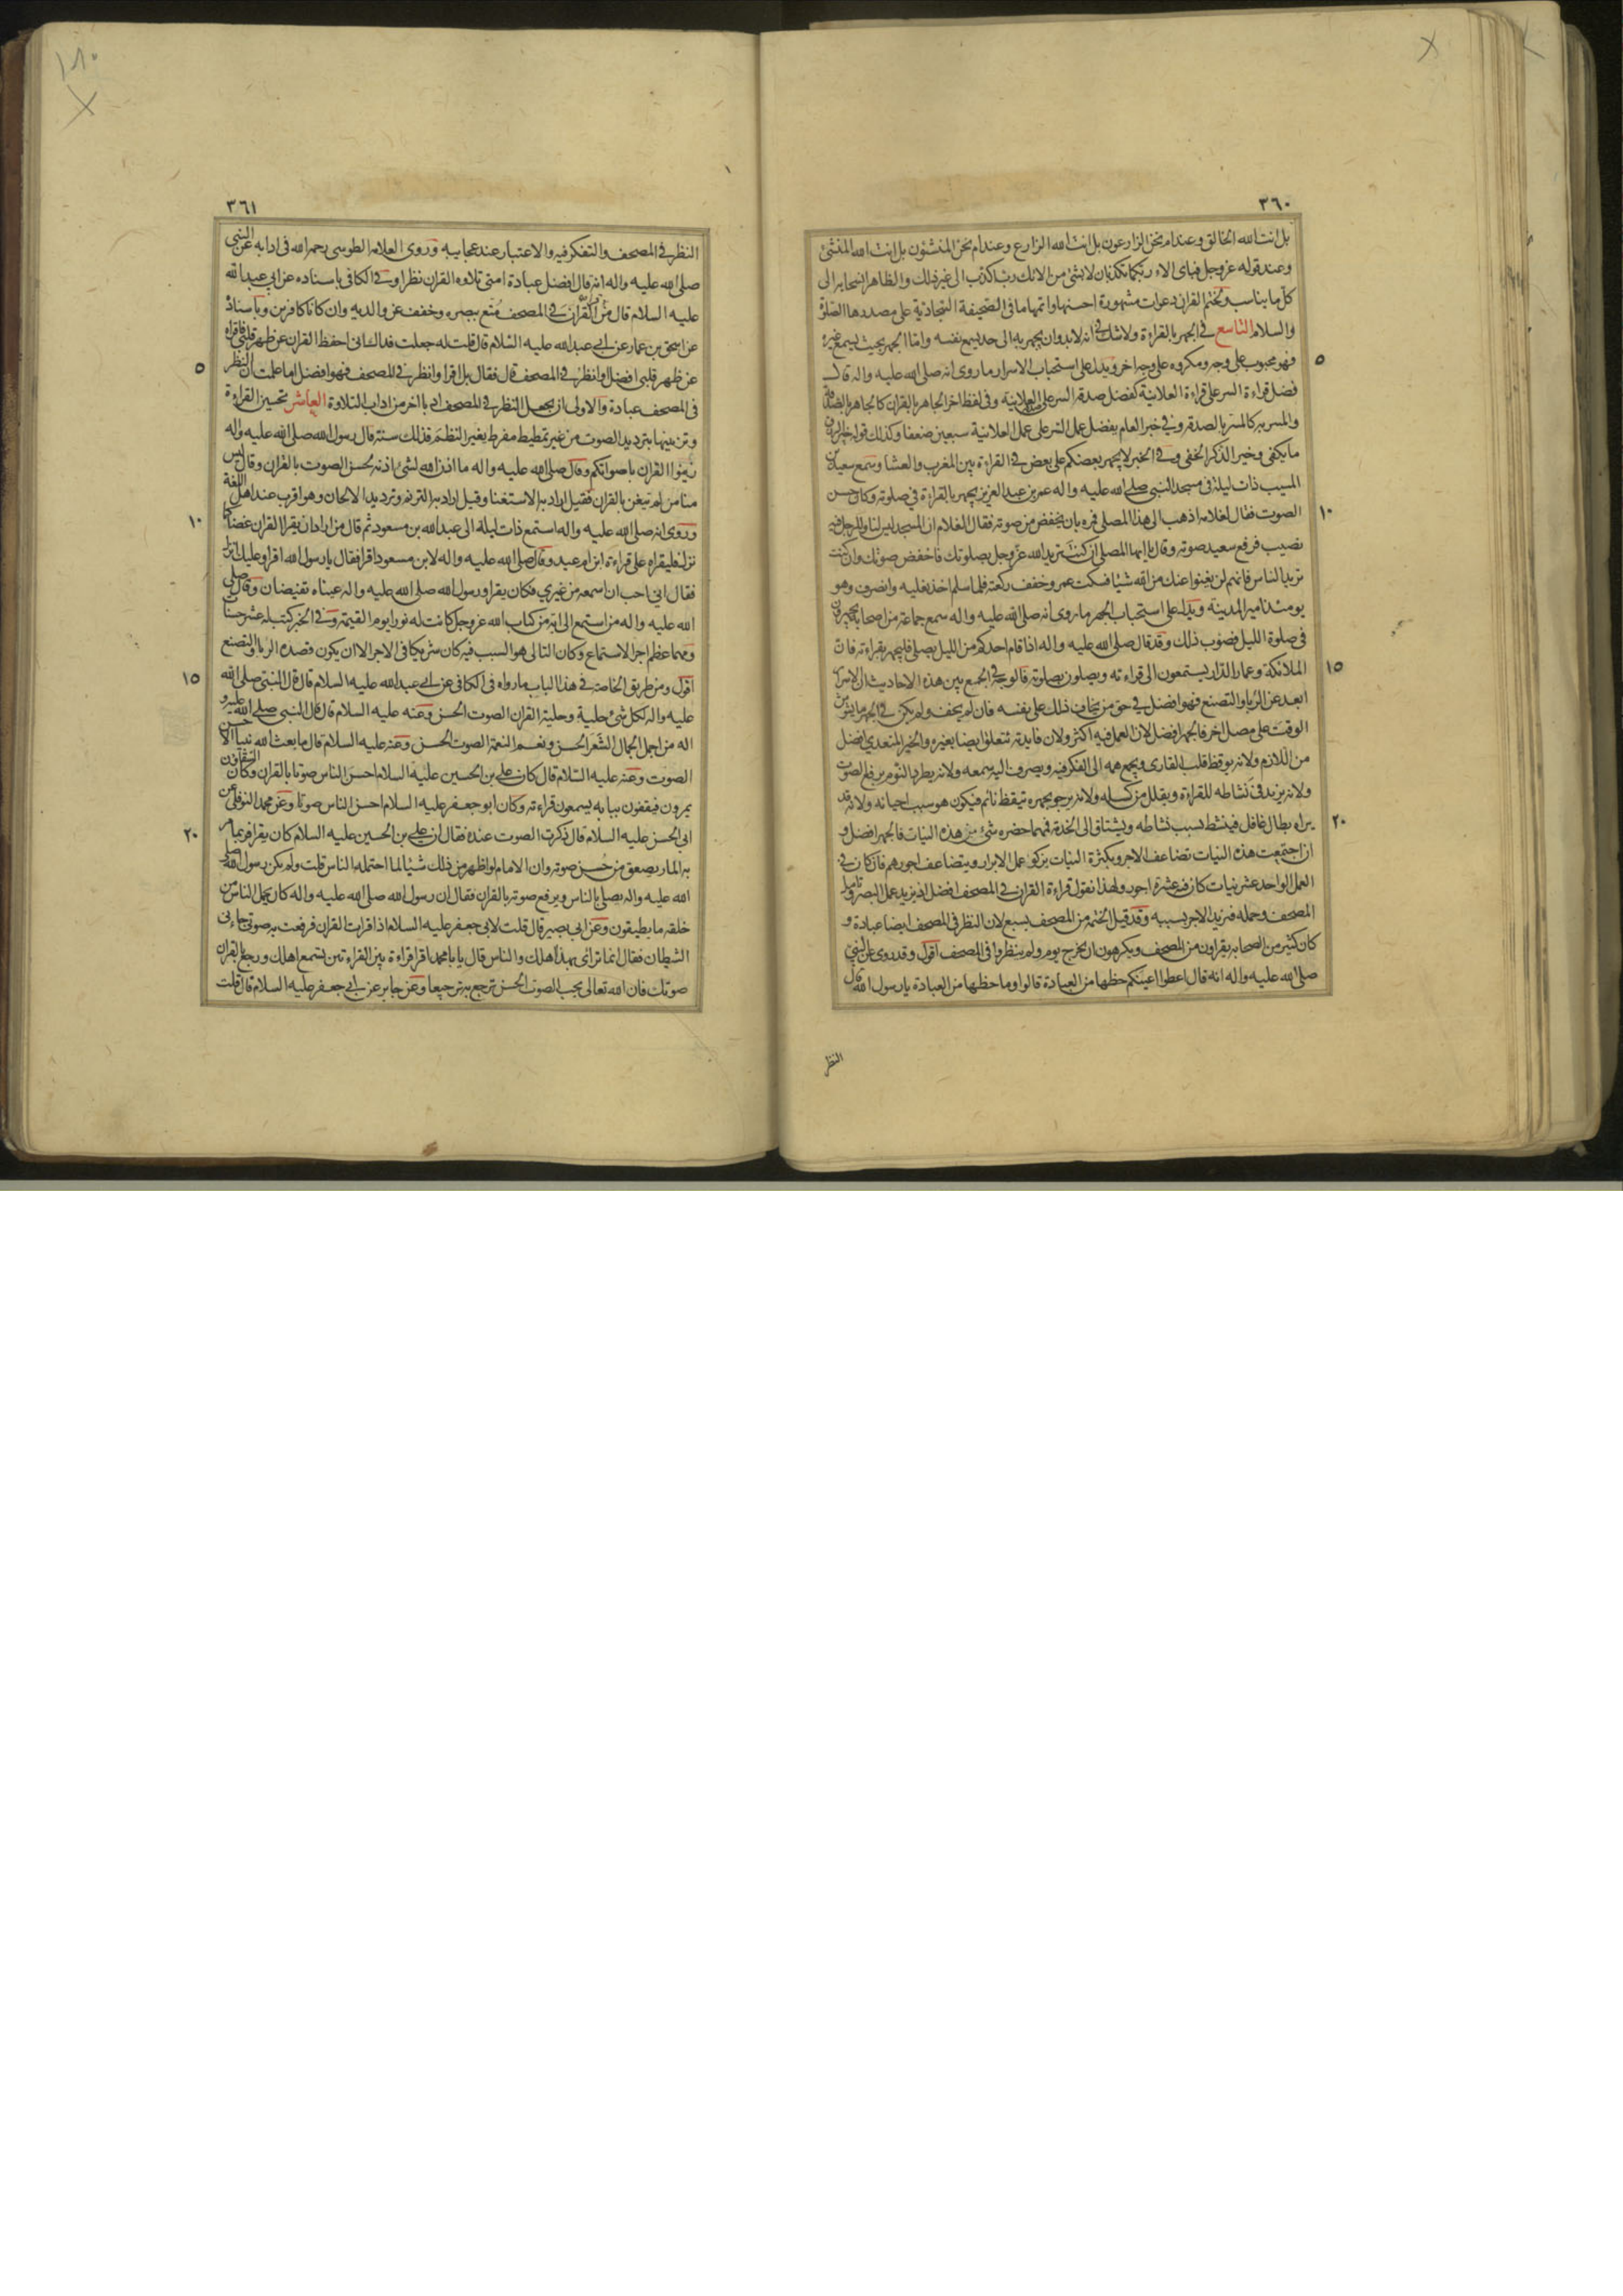 ٣٦٠
بل انت الله الخالق وعند ام نحن الزارعون بل انت الله الزارع وعند ام نحن المنشئون بل انت الله المنشئ
وعند قوله عز وجل فباى الاء ربكما تكذبان لا بشئ من الائك رب اكذب الى غير ذلك والظاهر انسحابه الى
كل ما يناسب ويختم القران بدعوات مشهورة احسنها واتمها ما فى الصحيفة السجادية على مصدرها الصلوة
والسلام التاسع فى الجهر بالقراءة ولا شك فى انه لا بد وان يجهر به الى حد يسمع نفسه واما الجهر بحيث يسمع غيره
٥
فهو محبوب على وجه ومكروه على وجه اخر ويدل على استحباب الاسرار ما روى انه صلى الله عليه واله قال
فضل قراءة السر على قراءة العلانية كفضل صدقة السر على العلانية وفى لفظ اخر الجاهر بالقران كالجاهر بالصدقة
والمسر به كالمسر بالصدقة وفى خبر العام يفضل عمل السر على عمل العلانية سبعين ضعفا وكذلك قوله خير الرزق
ما يكفى وخير الذكر الخفى وفى الخبر لا يجهر بعضكم على بعض فى القراءة بين المغرب والعشا وسمع سعيد بن
المسيب ذات ليلة فى مسجد النبى صلى الله عليه واله عمر بن عبد العزيز يجهر بالقراءة فى صلوته وكان حسن
١٠
الصوت فقال لغلامه اذهب الى هذا المصلى فمره بان يخفض من صوته فقال الغلام ان المسجد ليس لنا وللرجل فيه
نصيب فرفع سعيد صوته وقال يا ايها المصلى ان كنت تريد الله عز وجل بصلوتك فاخفض صوتك وان كنت
تريد الناس فانهم لن يغنوا عنك من الله شيئا فسكت عمر وخفف ركعته فلما سلم اخذ نعليه وانصرف وهو
يومئذ امير المدينة ويدل على استحباب الجهر ما روى انه صلى الله عليه واله سمع جماعة من اصحابه يجهرون
فى صلوة الليل فصوب ذلك وقد قال صلى الله عليه واله اذا قام احدكم من الليل يصلى فليجهر بقراءته فان
١٥
الملائكة وعمار الدار يستمعون الى قراءته ويصلون بصلوته قالوا وجه الجمع بين هذه الاحاديث ان الاسرار
ابعد عن الريا والتصنع فهو افضل فى حق من يخاف ذلك على نفسه فان لم يخف ولم يكن فى الجهر ما يشوش
الوقت على مصل اخر فالجهر افضل لان العمل فيه اكثر ولان فايدته تتعلق ايضا بغيره والخير المتعدى افضل
من اللازم ولانه يوقظ قلب القارى ويجمع همه الى الفكر فيه ويصرف اليه سمعه ولانه يطرد النوم برفع الصوت
ولانه يزيد فى نشاطه للقراءة ويقلل من كسله ولانه يرجو بجهره تيقظ نائم فيكون هو سبب احيائه ولانه قد
٢٠
يراه بطال غافل فينشط بسبب نشاطه ويشتاق الى الخدمة فمهما حضره شئ من هذه النيات فالجهر افضل و
ان اجتمعت هذه النيات تضاعف الاجر وبكثرة النيات يزكو عمل الابرار ويتضاعف اجورهم فان كان فى
العمل الواحد عشر نيات كان فيه عشرة اجور ولهذا نقول قراءة القران فى المصحف افضل اذ يزيد عمل البصر وتامل
المصحف وحمله فيزيد الاجر بسببه وقد قيل الختمة من المصحف بسبع لان النظر فى المصحف ايضا عبادة و
كان كثير من الصحابه يقراون من المصحف ويكرهون ان يخرج يوم ولم ينظروا فى المصحف اقول وقد روى عن النبى
صلى الله عليه واله انه قال اعطوا اعينكم حظها من العبادة قالوا وما حظها من العبادة يا رسول الله قال
النظر
٣٦١
النظر فى المصحف والتفكر فيه والاعتبار عند عجايبه وروى العلامه الطوسى رحمه الله فى ادابه عن النبى
صلى الله عليه واله انه قال افضل عبادة امتى تلاوة القران نظرا وفى الكافى باسناده عن ابى عبد الله
عليه السلام قال من قرا القران فى المصحف متع ببصره وخفف عن والديه وان كانا كافرين وباسناده
عن اسحق بن عمار عن ابى عبد الله عليه السلام قال قلت له جعلت فداك انى احفظ القران عن ظهر قلبى فاقراه
٥
عن ظهر قلبى افضل او انظر فى المصحف قال فقال بل اقرا وانظر فى المصحف فهو افضل اما علمت ان النظر
فى المصحف عبادة والاولى ان يجعل النظر فى المصحف ادبا اخر من اداب التلاوة العاشر تحسين القراءة
وتزيينها بترديد الصوت من غير تمطيط مفرط يغير النظم فذلك سنة قال رسول الله صلى الله عليه واله
زينوا القران باصواتكم وقال صلى الله عليه واله ما اذن الله لشئ اذنه لحسن الصوت بالقران وقال ليس
منا من لم يتغن بالقران فقيل اراد به الاستغنا وقيل اراد به الترنم وترديد الالحان وهو اقرب عند اهل اللغة
١٠
وروى انه صلى الله عليه واله استمع ذات ليلة الى عبد الله بن مسعود ثم قال من اراد ان يقرا القران غضا كما
نزل فليقراه على قراءة ابن ام عبد وقال صلى الله عليه واله لابن مسعود اقرا فقال يا رسول الله اقرا وعليك انزل
فقال انى احب ان اسمعه من غيرى فكان يقرا ورسول الله صلى الله عليه واله عيناه تفيضان وقال صلى
الله عليه واله من استمع الى اية من كتاب الله عز وجل كانت له نورا يوم القيمة وفى الخبر كتب له عشر حسنات
ومهما عظم اجر الاستماع وكان التالى هو السبب فيه كان شريكا فى الاجر الا ان يكون قصده الريا والتصنع
١٥
اقول ومن طريق الخاصة فى هذا الباب ما رواه فى الكافى عن ابى عبد الله عليه السلام قال قال النبى صلى الله
عليه واله لكل شئ حلية وحلية القران الصوت الحسن وعنه عليه السلام قال قال النبى صلى الله عليه و
اله من اجمل الجمال الشعر الحسن ونعم النعمة الصوت الحسن وعنه عليه السلام قال ما بعث الله نبيا الا حسن
الصوت وعنه عليه السلام قال كان على بن الحسين عليه السلام احسن الناس صوتا بالقران وكان السقاون
يمرون فيقفون ببابه يسمعون قراءته وكان ابو جعفر عليه السلام احسن الناس صوتا وعن محمد النوفلى عن
٢٠
ابى الحسن عليه السلام قال ذكرت الصوت عنده فقال ان على بن الحسين عليه السلام كان يقرا فربما مر
به المار فصعق من حسن صوته وان الامام لو اظهر من ذلك شيئا لما احتمله الناس قلت ولم يكن رسول الله صلى
الله عليه واله يصلى بالناس ويرفع صوته بالقران فقال ان رسول الله صلى الله عليه واله كان يحمل الناس من
خلقه ما يطيقون وعن ابى بصير قال قلت لابى جعفر عليه السلام اذا قرات القران فرفعت به صوتى جاءنى
الشيطان فقال انما ترائى بهذا اهلك والناس قال يا با محمد اقرا قراءة بين القراءتين تسمع اهلك ورجع بالقران
صوتك فان الله تعالى يحب الصوت الحسن ترجع به ترجيعا وعن جابر عن ابى جعفر عليه السلام قال قلت